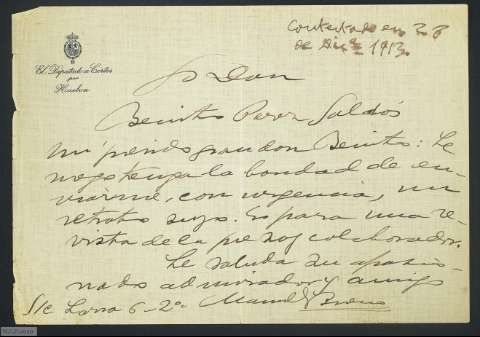 Contestado en 26
de Dic.e 1913.
El Diputado a Cortes
por
Huelva
Sr Don
Benito Perez Galdós
Mi querido gran don Benito: Le
ruego tenga la bondad de en-
viarme, con urgencia, un
retrato suyo. Es para una re-
vista de la que soy colaborador.
Le saluda su apasio-
nado admirador y amigo
S/c Lara 6-2º Manuel Bueno